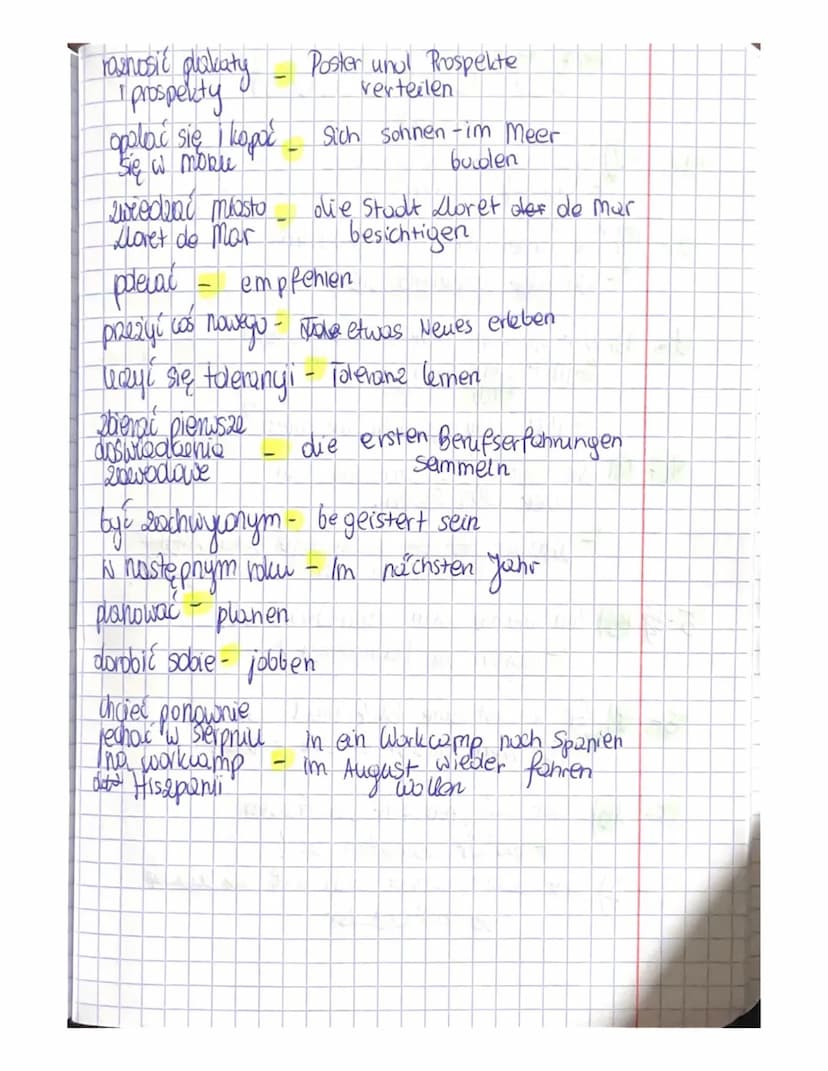 roznosić plakaty - Poster und Prospekte
i prospekty verteilen
opalać się i kąpać - Sich sohnen - im Meer
się w morzu baden
zwiedzać miasto - die Stadt Lloret der de Mar
Lloret de Mar besichtigen
polecać - empfehlen
przeżyć coś nowego - etwas Neues erleben
uczyć się tolerancji - Toleranz lernen
zbierać pierwsze
doświadczenia - die ersten Berufserfahrungen
zawodowe sammeln
być zachwyconym - begeistert sein
w następnym roku - Im nächsten Jahr
planować - planen
dorobić sobie - jobben
chcieć ponownie
jechać w sierpniu in ein Workcamp nach Spanien
na workcamp - im August wieder fahren
Hiszpanii wollen